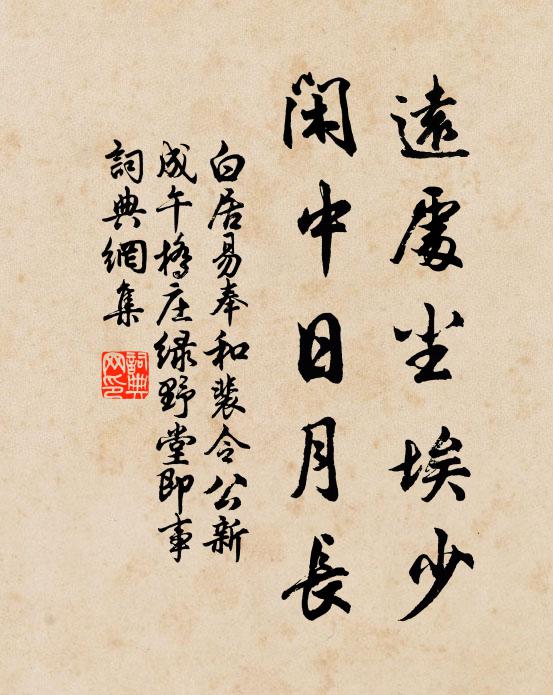 遠處尘埃少
闲中日月長
白居易奉和裴令公新
成午橋庄緑野堂即事
詞典網集
詞典网印